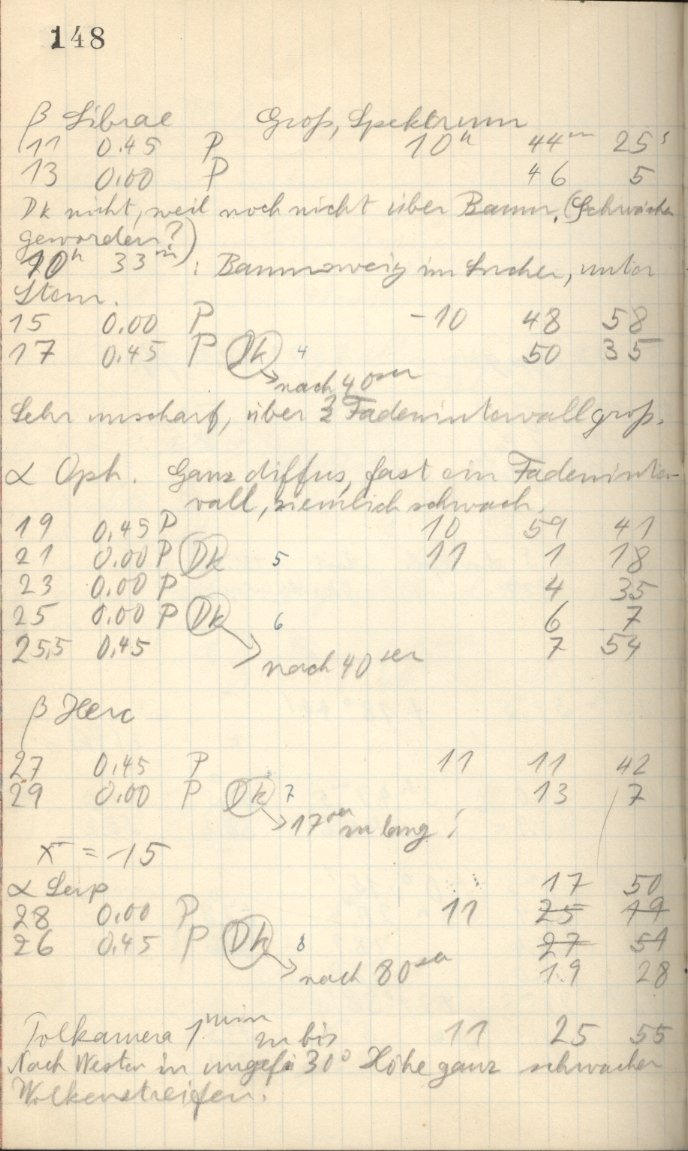 148
β Librae Groß, Spektrum
11 0.45 P 10h 44m 25s
13 0.00 P 46 5
Dk nicht, weil noch nicht über Baum. (Schwächer
geworden?)
10h 33m: Baumzweig im Sucher, unter
Stern.
15 0.00 P -10 48 58
17 0.45 P Dk 4 50 35
nach 40 sec
Sehr unscharf, über Fadenintervall groß.
α Oph. Ganz diffus, fast ein Fadeninter-
vall, ziemlich schwach.
19 0.45 P 10 59 41
21 0.00 P Dk 5 11 1 18
23 0.00 P 4 35
25 0.00 P Dk 6 6 7
25,5 0.45 7 54
nach 40 sec
β Herc
27 0.45 P 11 11 42
29 0.00 P Dk 7 13 7
17 sec zu lang!
= -15
α Serp 17 50
28 0.00 P 11 25 19
26 0.45 P Dk 8 27 51
nach 80 sec 19 28
Polkamera 1 min zu bis 11 25 55
Nach Westen in ungef. 30° Höhe ganz schwacher
Wolkenstreifen.